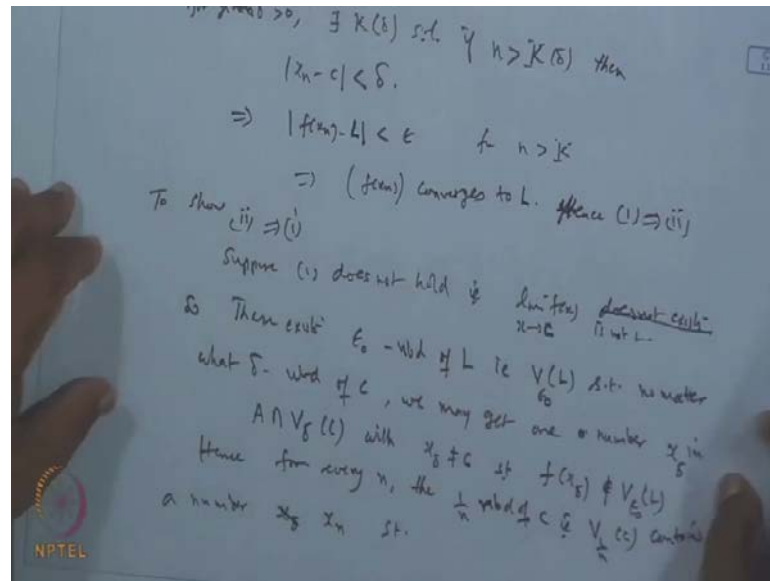 >0, ∃ K(δ) s.t. if n > K(δ) then
|xn - c| < δ.
⇒ |f(xn) - L| < ε for n > K
⇒ (f(xn)) converges to L. Hence (i) ⇒ (ii)
To show (ii) ⇒ (i)
Suppose (i) does not hold ie lim f(x) does not exist
x→c is not L.
So There exist ε0 - nbd of L ie Vε0(L) s.t. no matter
what δ- nbd of c, we may get one number xδ in
A ∩ Vδ(c) with xδ ≠ c st f(xδ) ∉ Vε0(L)
Hence for every n, the 1/n nbd of c ie V1/n(c) contains
a number xδ xn st.
NPTEL